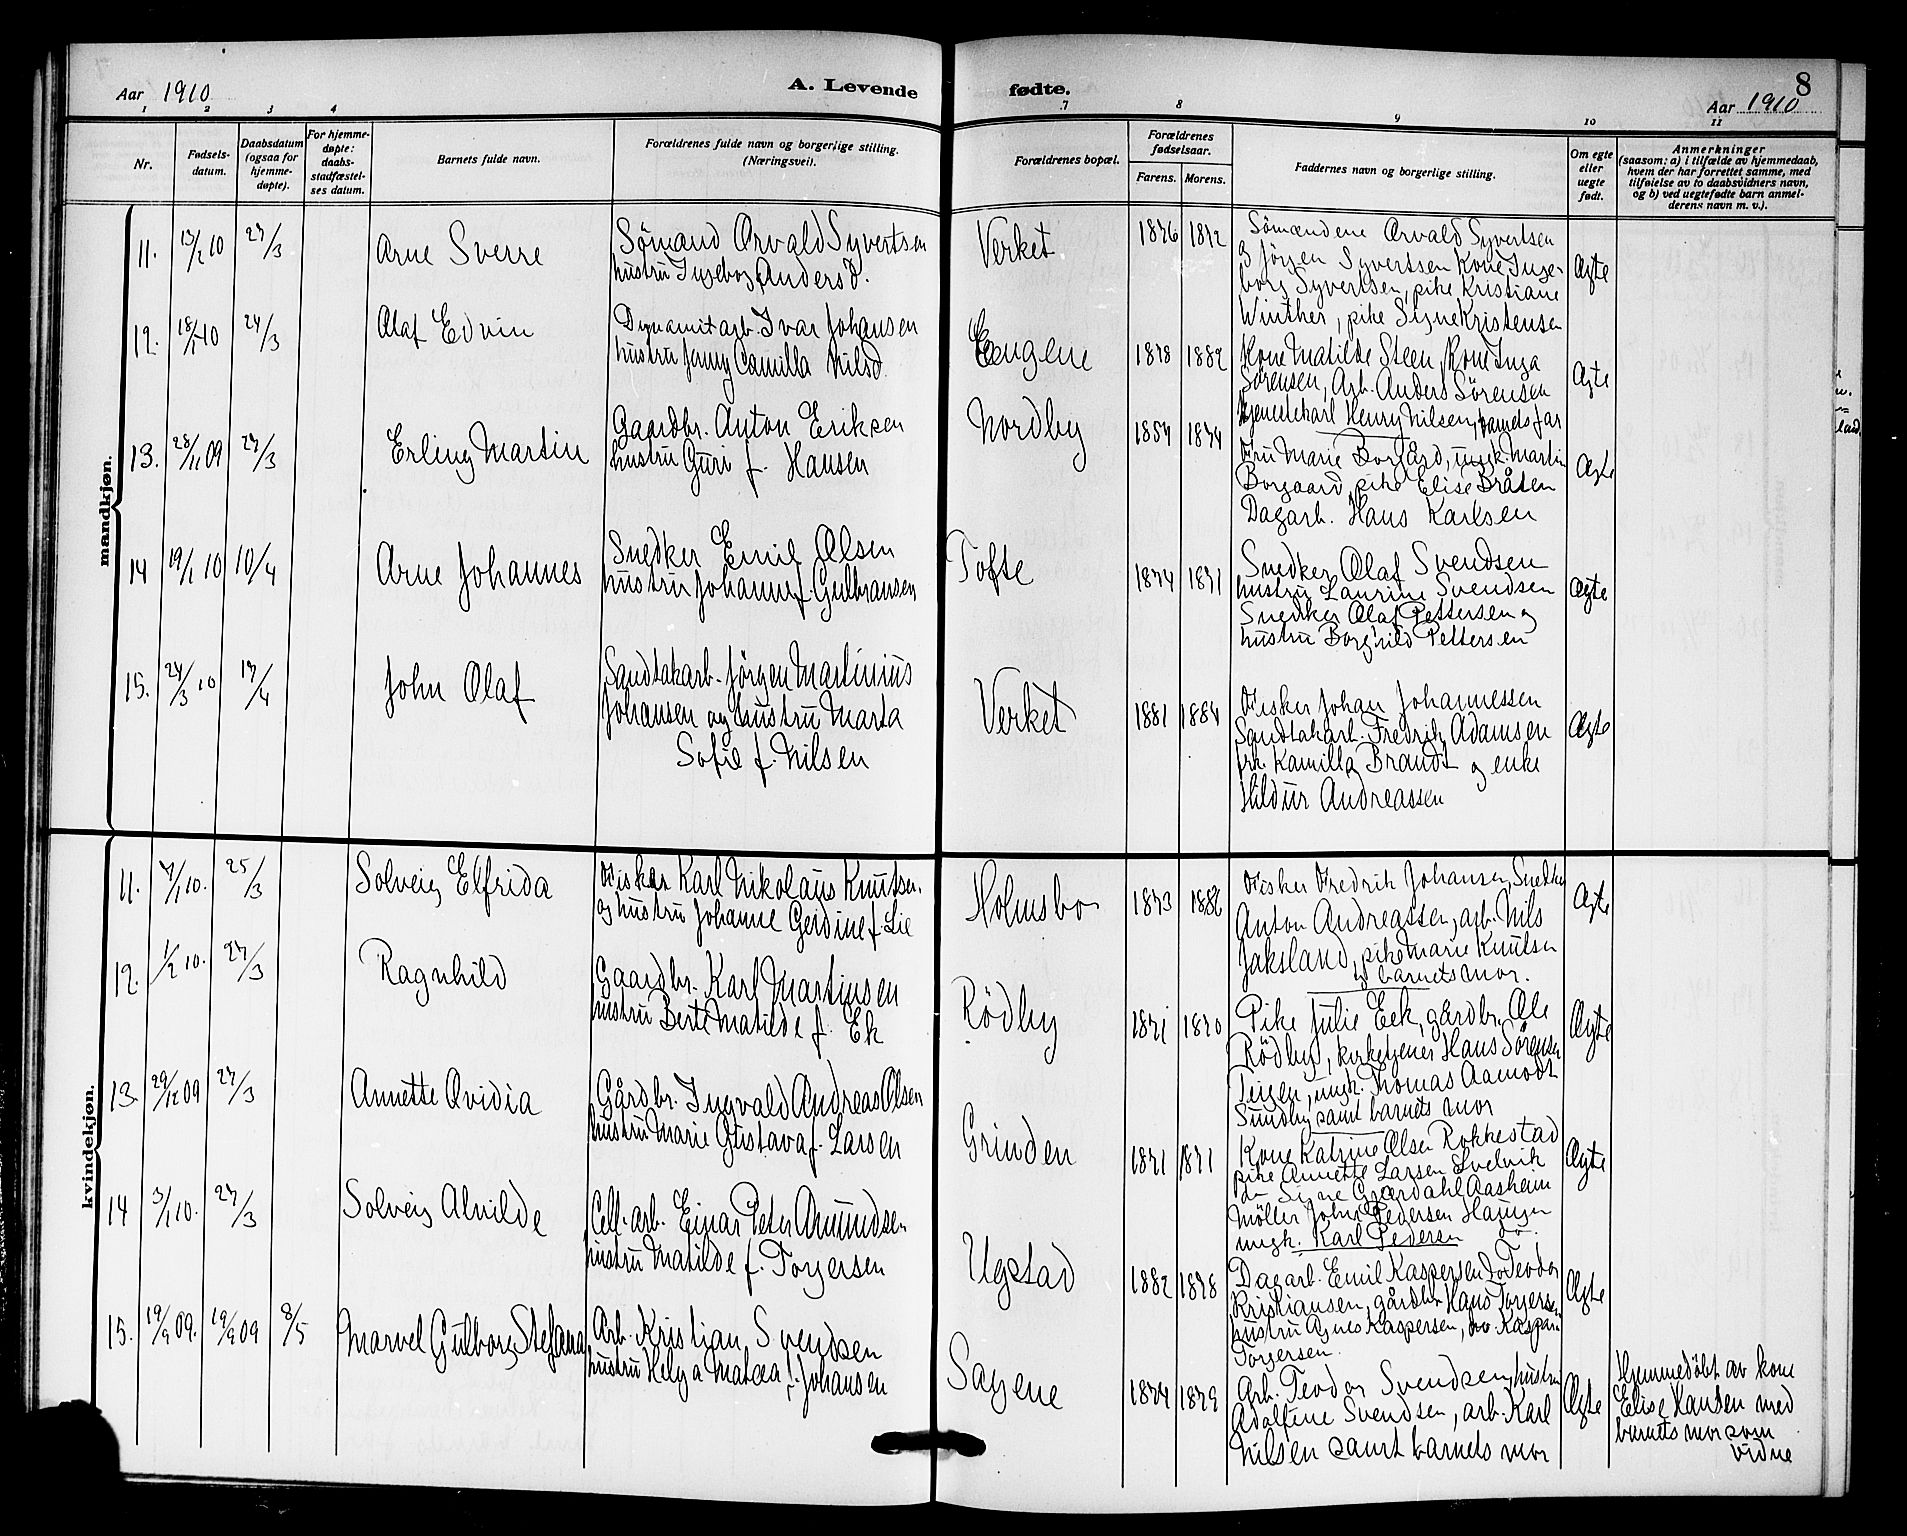 Aar 1910
A. Levende
fødte.
8
Aar 1910
1 2 3 4 7 8 9 10 11
Nr.
Fødsels-
datum.
Daabsdatum
(ogsaa for
hjemme-
døpte).
For hjemme-
døpte:
daabs-
stadfæstel-
ses datum.
Barnets fulde navn.
Forældrenes fulde navn og borgerlige stilling.
(Næringsvei).
Forældrenes bopæl.
Forældrenes
fødselsaar.
Farens. Morens.
Faddernes navn og borgerlige stilling.
Om egte
eller
uegte
født.
Anmerkninger
(saasom: a) i tilfælde av hjemmedaab,
hvem der har forrettet samme, med
tilføielse av to daabsvidners navn,
og b) ved uegtefødte barn anmel-
derens navn m. v.).
mandkjøn.
11. 13/2 10 27/3
Arne Sverre
Sømand Arvald Syvertsen
hustru Ingeborg Andersd.
Verket
1876 1872
Sømændene Arvald Syvertsen
og Jørgen Syvertsen Kone Inge-
borg Syvertsen, pike Kristiane
Winther, pike Signe Kristensen
Ægte
12. 18/1 10 24/3
Olaf Edvin
Dynamitarb. Ivar Johansen
hustru Jenny Camilla Nilsd.
Engene
1878 1882
Kone Matilde Steen, Kone Inga
Sørensen, Arb. Anders Sørensen
tjenestekarl Henry Nilsen, barnets far
Ægte
13. 28/11 09 27/3
Erling Martin
Gaardbr. Anton Eriksen
hustru Guri f. Hansen
Nordby
1854 1874
Fru Marie Borgård, ungk. Martin
Borgaard, pike Elise Bråten
Dagarb. Hans Karlsen
Ægte
14 19/1 10 10/4
Arne Johannes
Snedker Emil Olsen
hustru Johanne f. Gulbransen
Tofte
1874 1871
Snedker Olaf Svendsen
hustru Laurine Svendsen
Snedker Olaf Pettersen og
hustru Borghild Pettersen
Ægte
15. 24/3 10 17/4
John Olaf
Sandtakarb. Jørgen Martinius
Johansen og hustru Marta
Sofie f. Nilsen
Verket
1881 1884
Fisker Johan Johannessen
Sandtakarb. Fredrik Adamsen
frk. Kamilla Brandt og enke
Hildur Andreassen
Ægte
kvindekjøn.
11. 7/1 10. 25/3
Solveig Elfrida
Fisker Karl Nikolaus Knutsen.
og hustru Johanne Gerdine f. Lie
Holmsbo
1873 1886
Fisker Fredrik Johansen, Snedker
Anton Andreassen, arb. Nils
Jaksland, pike Marie Knutsen
og barnets mor.
Ægte
12. 1/2 10. 27/3
Ragnhild
Gaardbr. Karl Martinsen
hustru Berte Matilde f. Ek
Rødby
1871 1870
Pike Julie Eek, gårdbr. Ole
Rødby, kirketjener Hans Sørensen
Teigen, ungk. Thomas Aamodt
Sundby samt barnets mor
Ægte
13. 29/12 09 27/3
Annette Ovidia
Gårdbr. Ingvald Andreas Olsen
hustru Marie Gustava f. Larsen
Grinden
1871 1871
Kone Katrine Olsen Rokkestad
pike Annette Larsen Svelvik
do Signe Gjærdahl Aasheim
Møller John Pedersen Haugen
ungk. Karl Pedersen do.
Ægte
14 3/1 10. 27/3
Solveig Alvilde
Cell. arb. Einar Peter Amundsen
hustru Matilde f. Torgersen
Ugstad
1882 1878
Dagarb. Emil Kaspersen do Teodor
Kristiansen, gårdbr. Hans Torgersen
hustru Agnes Kaspersen,
Torgersen.
Ægte
15. 19/9 09. 19/9 09 8/5
Marvel Gulborg Stefana
Arb. Kristian Svendsen
hustru Helga Matea f. Johansen
Sagene
1874 1879
Arb. Teodor Svendsen, hustru
Adolfine Svendsen, arb. Karl
Nilsen samt barnets mor
Ægte
Hjemmedøbt av kone
Elise Hansen med
barnets mor som
vidne